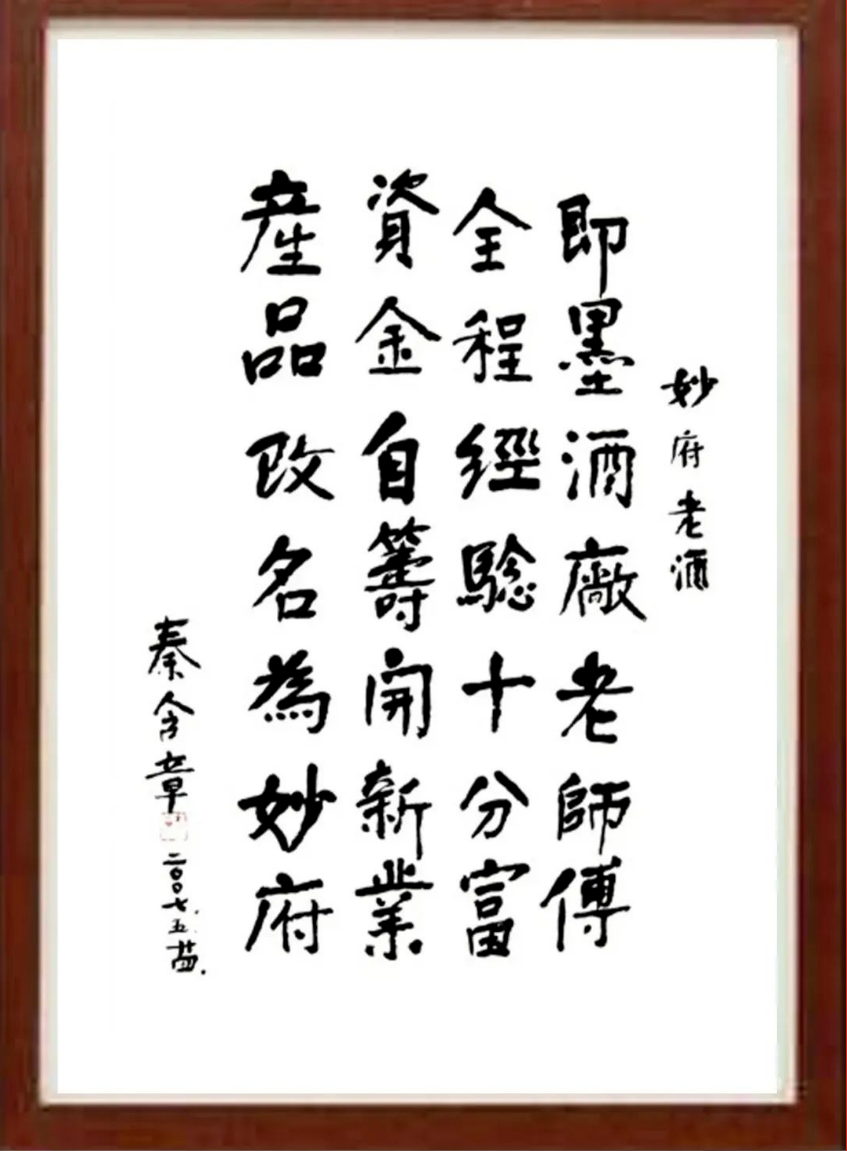 妙府老酒
即墨酒廠老師傅
全程經騐十分富
資金自籌開新業
産品改名為妙府
秦含章 二〇〇七.五.廿四.